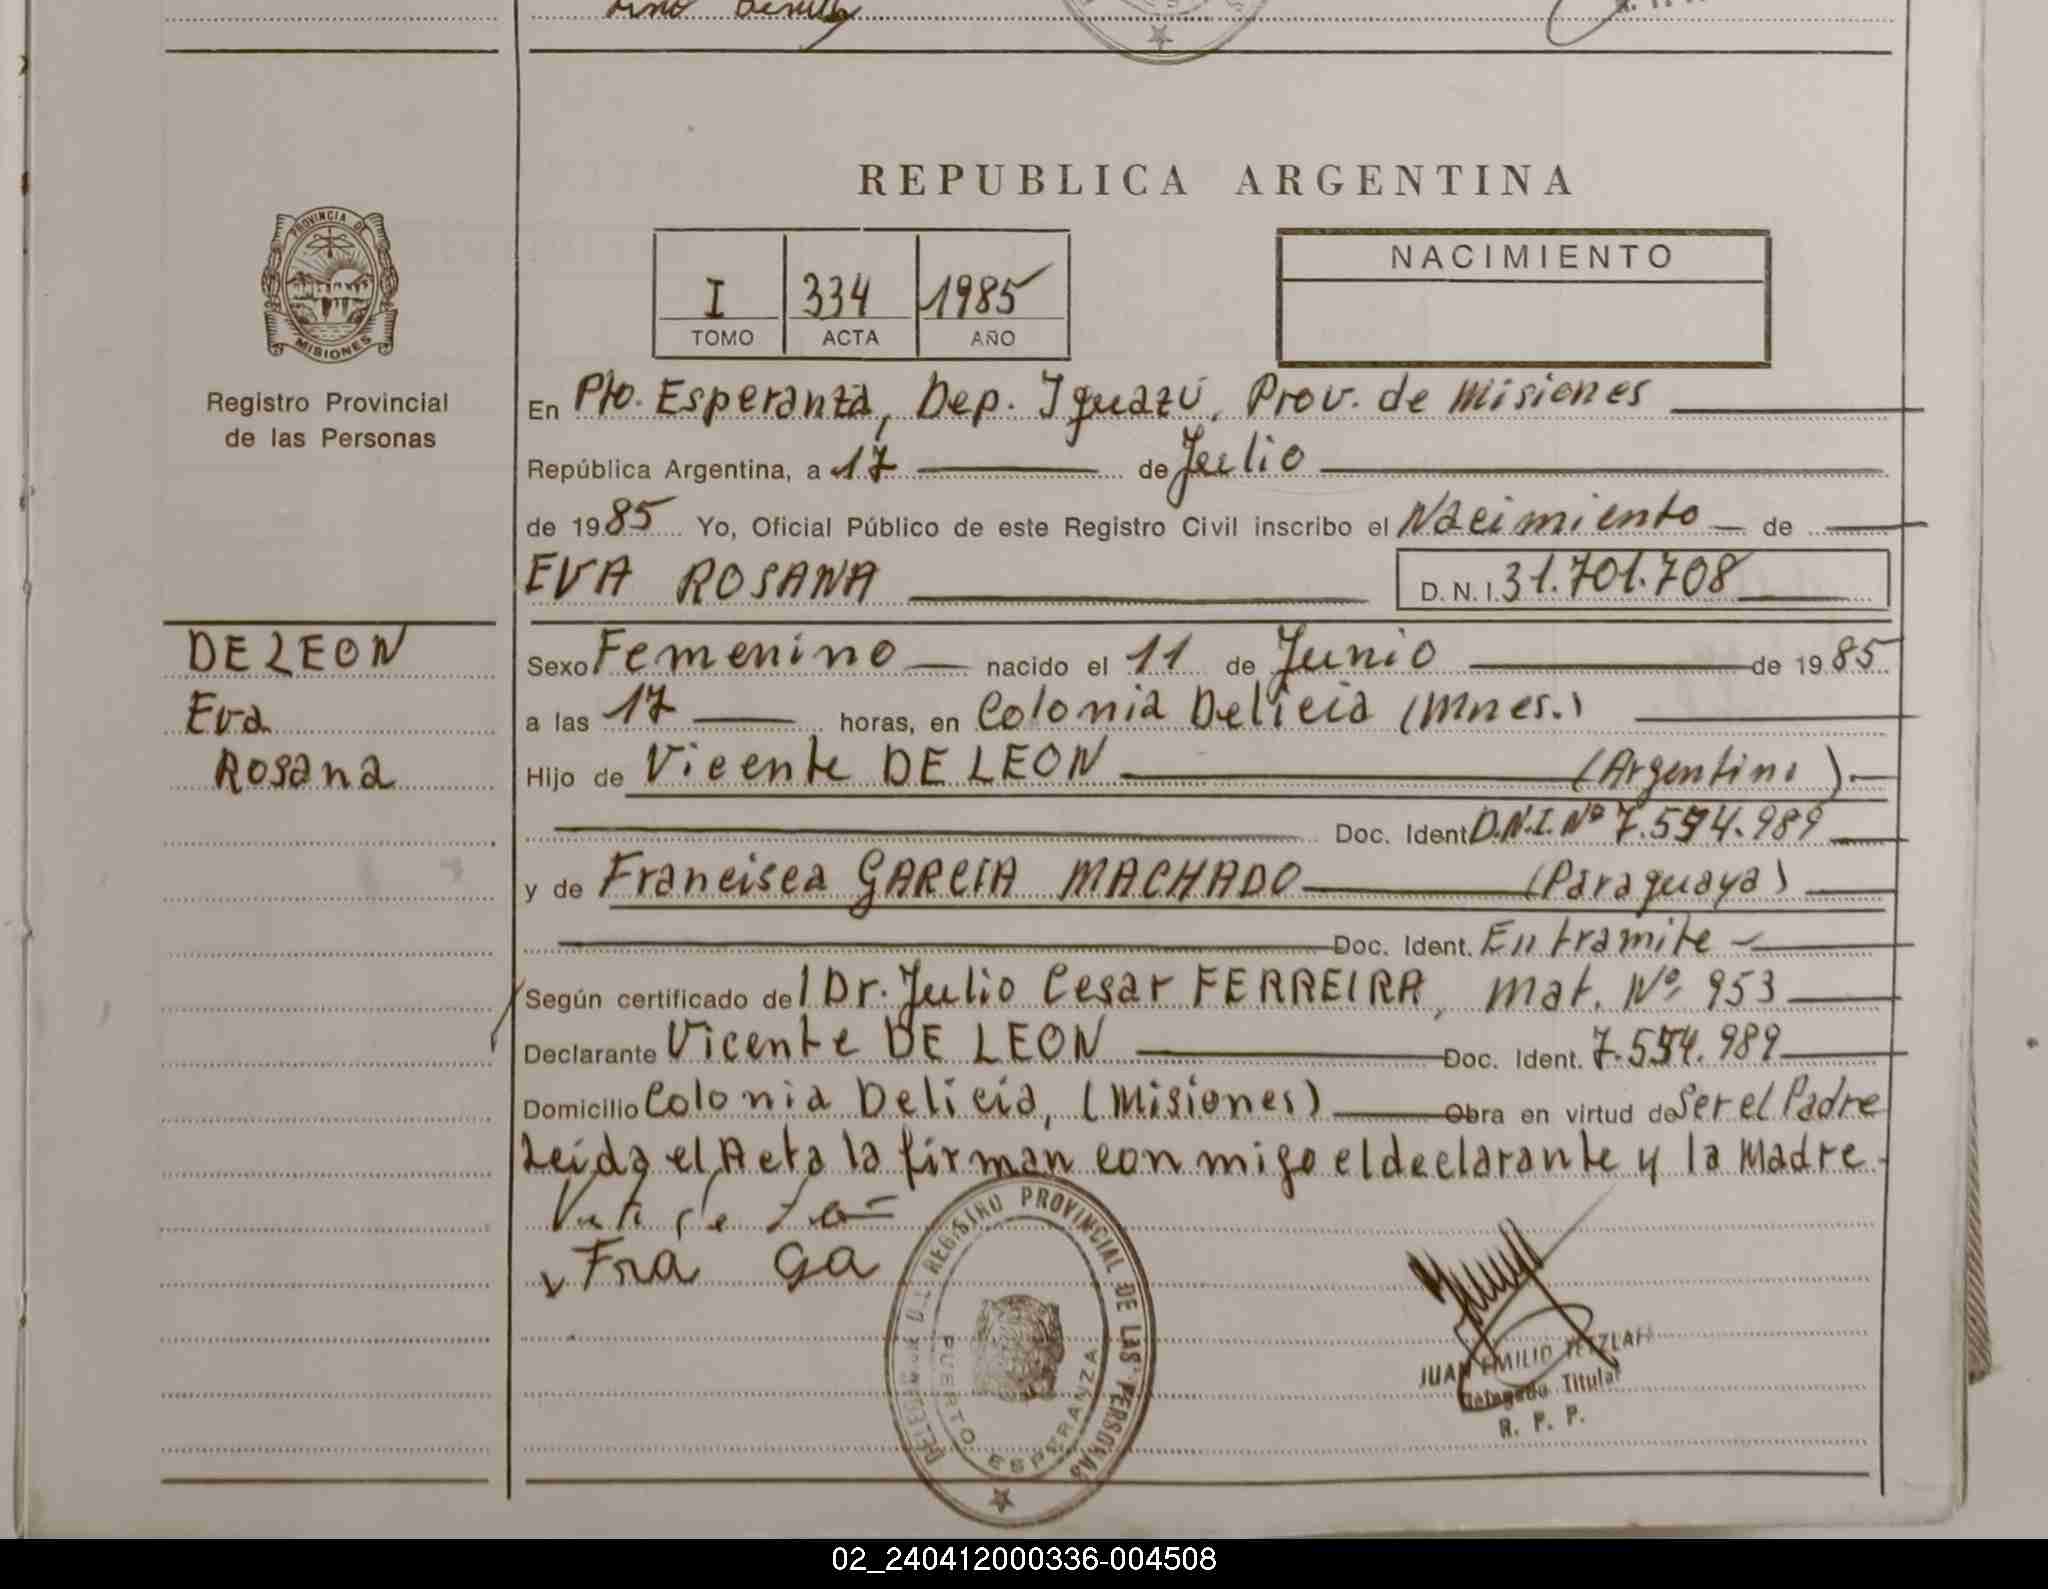 REPUBLICA ARGENTINA
PROVINCIA DE
MISIONES
Registro Provincial
de las Personas
I 334 1985
TOMO ACTA AÑO
NACIMIENTO
En Pto. Esperanza, Dep. Iguazú, Prov. de Misiones
República Argentina, a 17 de Julio
de 1985 Yo, Oficial Público de este Registro Civil inscribo el Nacimiento de
EVA ROSANA D.N.I. 31.701.708
DE LEON
Eva
Rosana
Sexo Femenino nacido el 11 de Junio de 1985
a las 17 horas, en Colonia Delicia (Mnes.)
Hijo de Vicente DE LEON (Argentino).
Doc. Ident D.N.I. Nº 7.554.989
y de Francisca GARCIA MACHADO (Paraguaya)
Doc. Ident. En tramite
Según certificado del Dr. Julio Cesar FERREIRA, Mat. Nº 953
Declarante Vicente DE LEON Doc. Ident. 7.554.989
Domicilio Colonia Delicia, (Misiones) Obra en virtud de Ser el Padre
Leida el Acta la firman con migo el declarante y la Madre.
Fra Ga
REGISTRO PROVINCIAL DE LAS PERSONAS
PUERTO ESPERANZA
JUAN EMILIO
Delegado Titular
R. P. P.
02_240412000336-004508